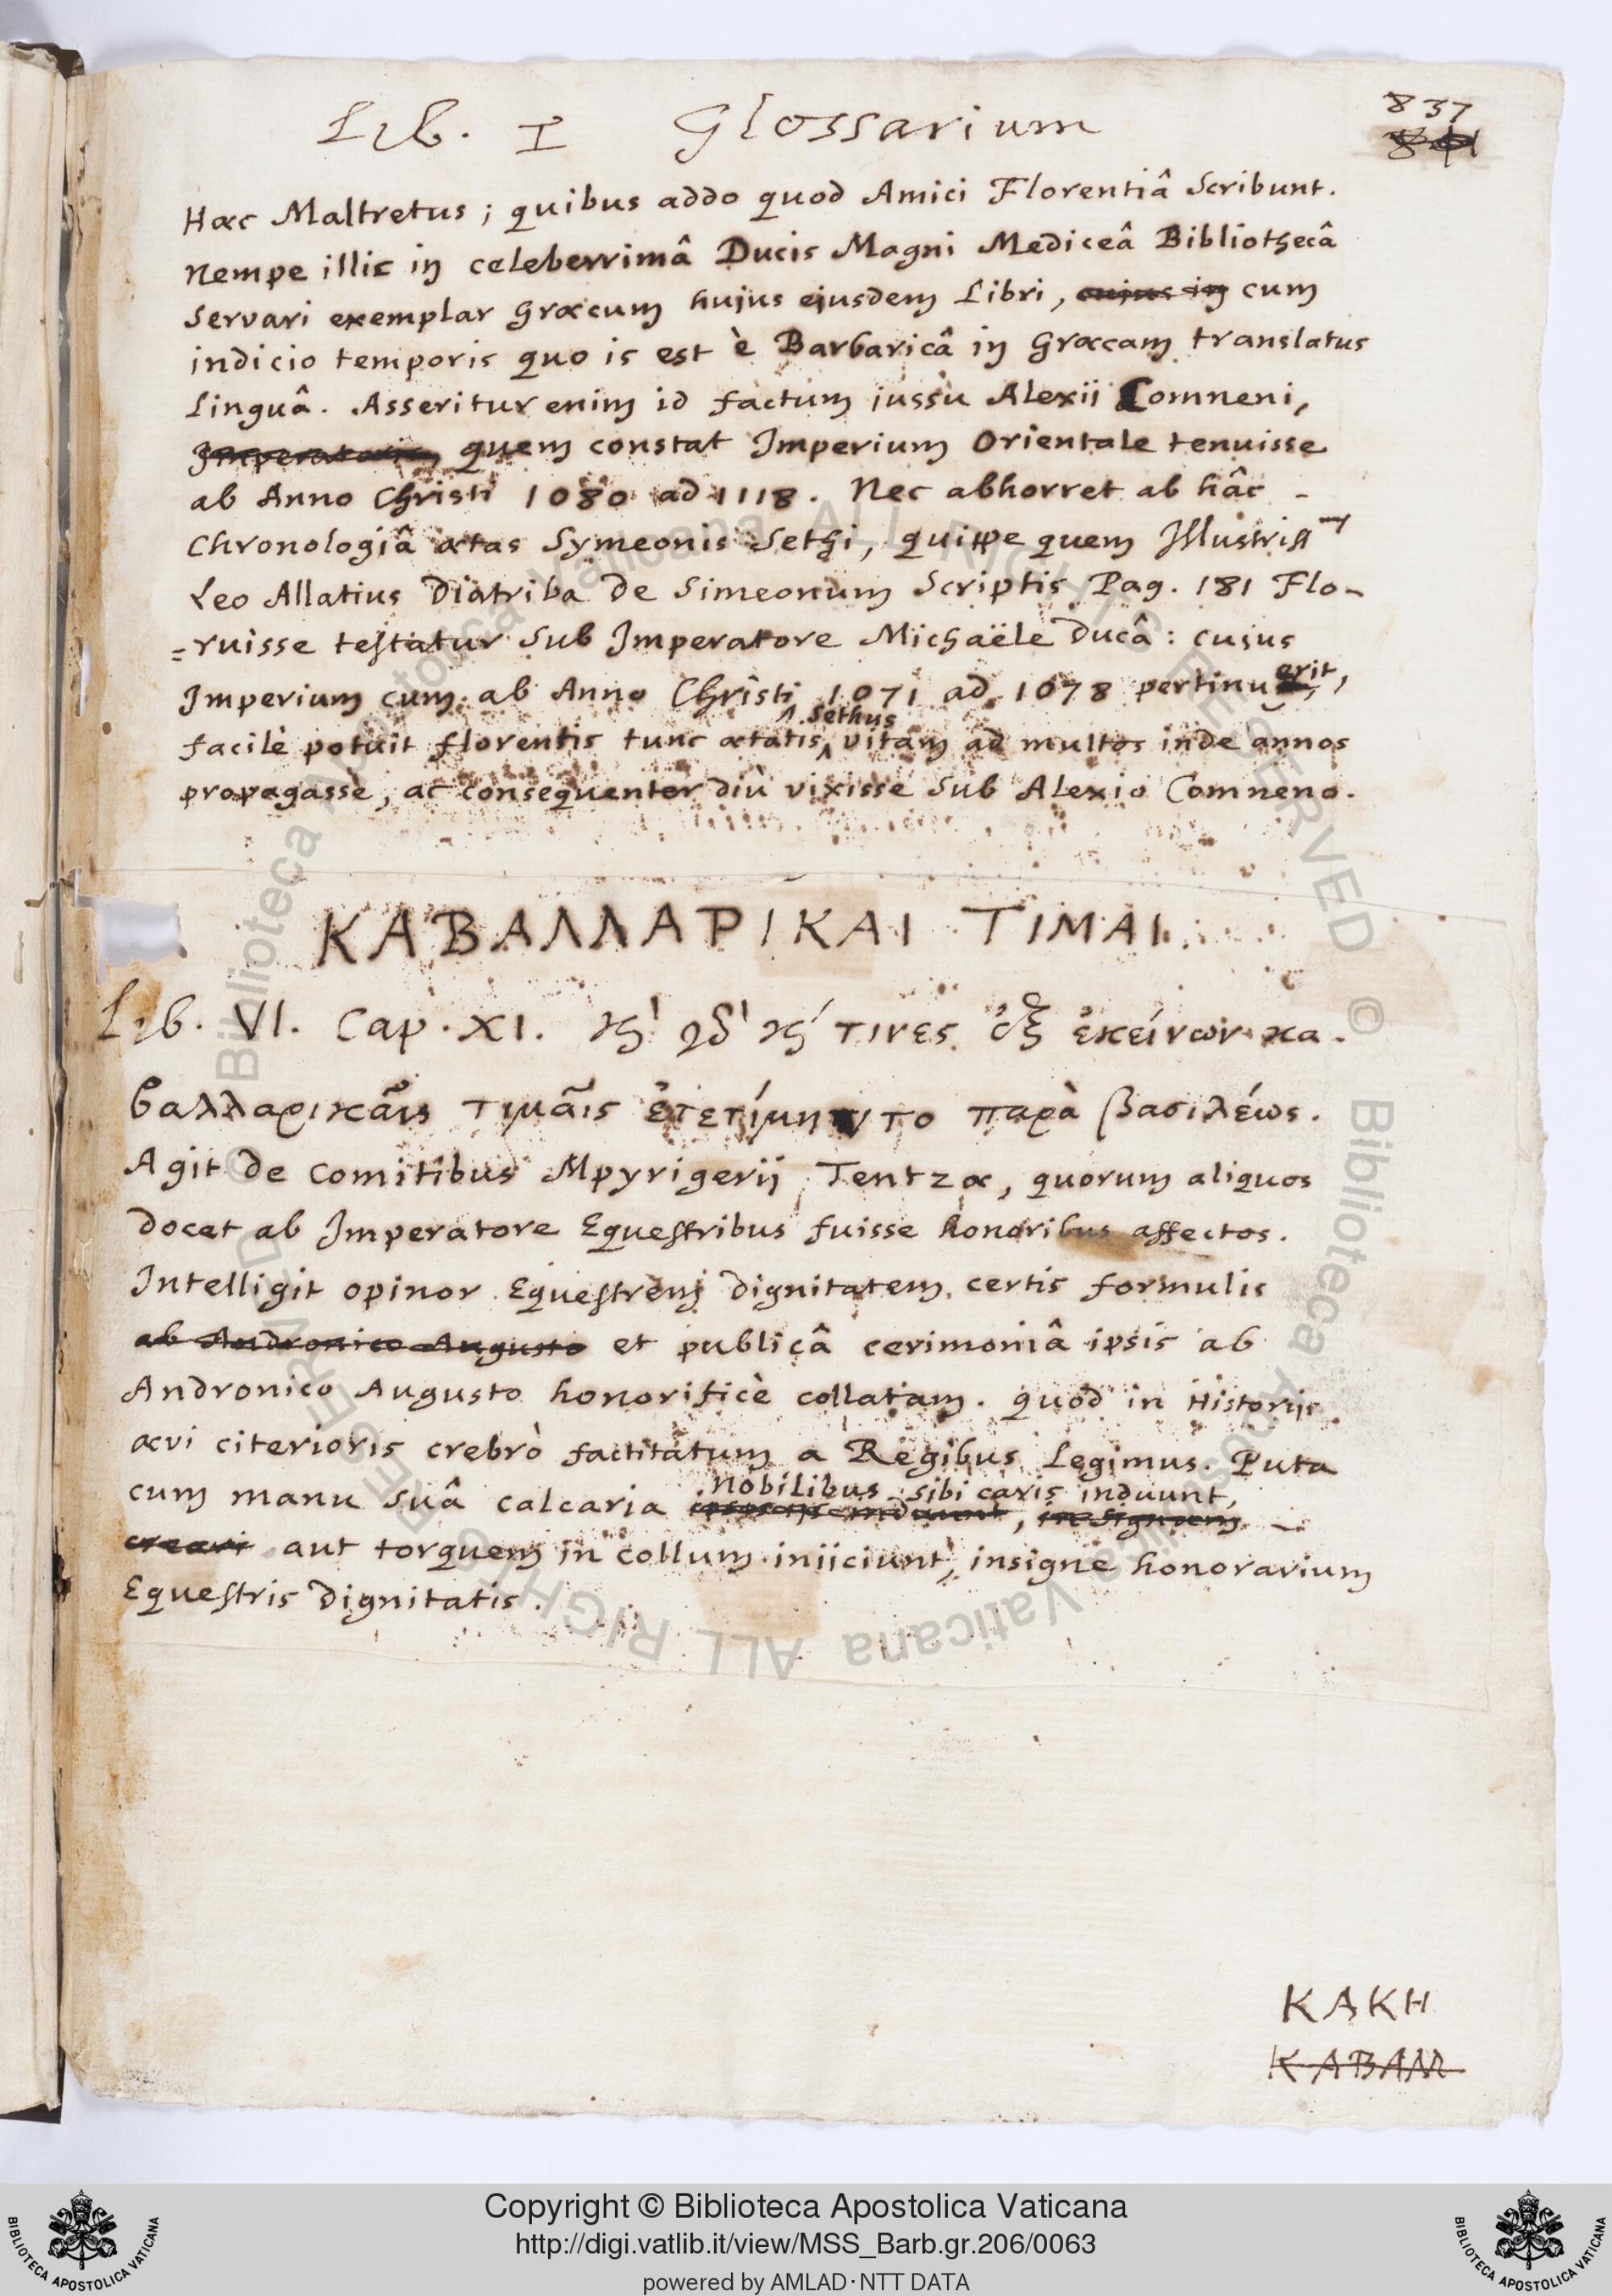 Lib. I Glossarium
837
841
Hæc Maltretus; quibus addo quod Amici Florentiâ Scribunt.
Nempe illic in celeberrimâ Ducis Magni Mediceâ Bibliothecâ
Servari exemplar Græcum hujus ejusdem Libri, cujus in cum
indicio temporis quo is est è Barbaricâ in Græcam translatus
Linguâ. Asseritur enim id factum jussu Alexii Comneni,
Imperatorem quem constat Imperium Orientale tenuisse
ab Anno Christi 1080 ad 1118. Nec abhorret ab hâc -
Chronologiâ ætas Symeonis Sethi, quippe quem Illustriss
Leo Allatius Diatriba de Simeonum Scriptis Pag. 181 Flo-
=ruisse testatur Sub Imperatore Michaële Ducâ: cujus
Imperium cum ab Anno Christi 1071 ad 1078 pertinuerit,
Sethus
facilè potuit florentis tunc ætatis vitam ad multos inde annos
propagasse, ac consequenter diù vixisse Sub Alexio Comneno.
ΚΑΒΑΛΛΑΡΙΚΑΙ ΤΙΜΑΙ
Lib. VI. Cap. XI. τινες ἐξ ἐκείνων κα.
βαλλαρικαῖς τιμαῖς ἐτετίμηντο παρὰ βασιλέως.
Agit de Comitibus Mpyrigerii Tentzæ, quorum aliquos
docet ab Imperatore Equestribus fuisse honoribus affectos.
Intelligit opinor Equestrem dignitatem certis formulis
ab Andronico Augusto et publicâ cerimoniâ ipsis ab
Andronico Augusto honorificè collatam. quod in Historijs
ævi citerioris crebrò factitatum a Regibus Legimus. Puta
Nobilibus sibi caris induunt,
cum manu suâ calcaria
creari aut torquem in collum iniiciunt, insigne honorarium
Equestris dignitatis.
ΚΑΚΗ
ΚΑΒΑΛΛ
© Biblioteca Apostolica Vaticana ALL RIGHTS RESERVED © Biblioteca Apostolica Vaticana ALL RIGHTS RESERVED
BIBLIOTECA APOSTOLICA VATICANA
Copyright © Biblioteca Apostolica Vaticana
http://digi.vatlib.it/view/MSS_Barb.gr.206/0063
powered by AMLAD·NTT DATA
BIBLIOTECA APOSTOLICA VATICANA